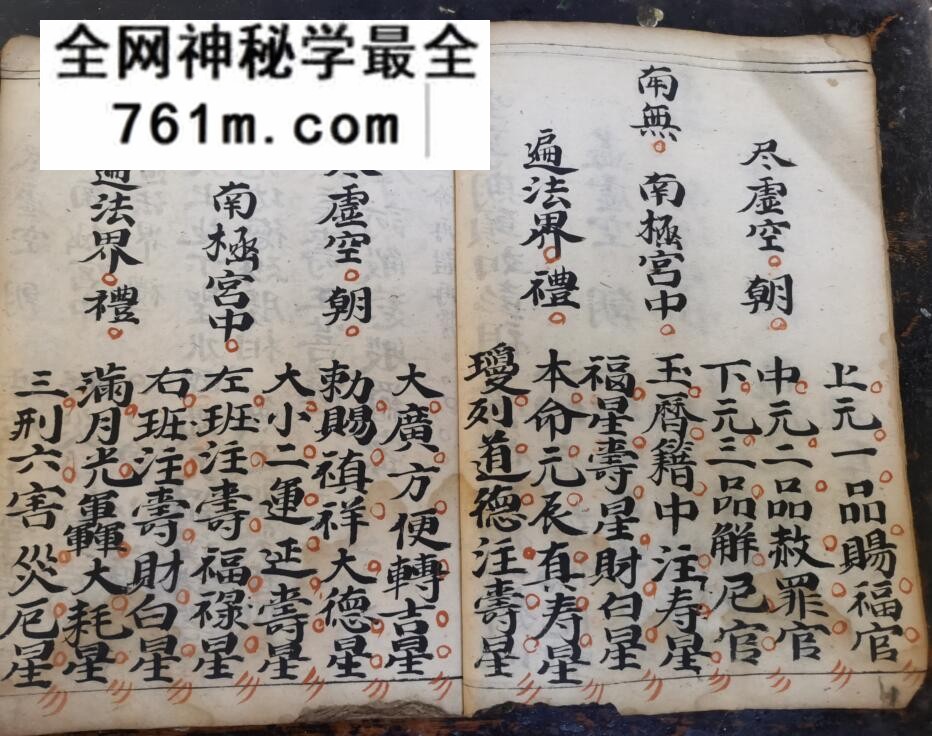 全网神秘学最全
761m.com
尽虛空。朝。
南無。南極宮中。
遍法界。禮。
上元一品賜福官
中元二品赦罪官
下元三品解厄官
玉曆籍中注寿星
福星壽星財白星
本命元辰真寿星
瓊刻道德注壽星
虛空。朝。
南極宮中。
法界。禮。
大廣方便轉吉星
勅賜禎祥大德星
大小二運延壽星
左班注壽福禄星
右班注壽財白星
滿月光大耗星
三刑六害災厄星